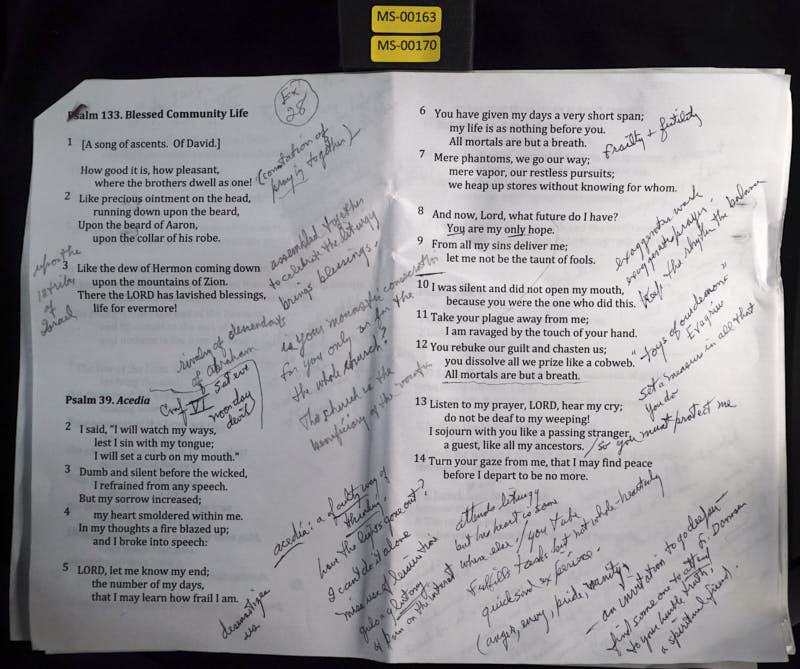 MS-00163
MS-00170
Psalm 133. Blessed Community Life
Ex
28
1 [A song of ascents. Of David.]
How good it is, how pleasant,
where the brothers dwell as one!
(connotation of
praying together)
2 Like precious ointment on the head,
running down upon the beard,
Upon the beard of Aaron,
upon the collar of his robe.
assembled together
to celebrate the liturgy
brings blessings.
upon the
12 tribes
of
Israel
3 Like the dew of Hermon coming down
upon the mountains of Zion.
There the LORD has lavished blessings,
life for evermore!
rivulets of descendants
of Abraham
is your monastic consecration
for you only or for the
the whole church?
The church is the
beneficiary of the
Conf VI
Sat eve
noonday
devil
Psalm 39. Acedia
2 I said, "I will watch my ways,
lest I sin with my tongue;
I will set a curb on my mouth."
3 Dumb and silent before the wicked,
I refrained from any speech.
But my sorrow increased;
4 my heart smoldered within me.
In my thoughts a fire blazed up;
and I broke into speech:
5 LORD, let me know my end;
the number of my days,
that I may learn how frail I am.
acedia: a faulty way of
thinking.
have the lights gone out?
I can't do it alone
misuse of
gluttony
porn on the internet
us
6 You have given my days a very short span;
my life is as nothing before you.
All mortals are but a breath.
frailty + futility
7 Mere phantoms, we go our way;
mere vapor, our restless pursuits;
we heap up stores without knowing for whom.
8 And now, Lord, what future do I have?
You are my only hope.
9 From all my sins deliver me;
let me not be the taunt of fools.
exaggerates work
exaggerates prayer.
Keep the rhythm, the balance
10 I was silent and did not open my mouth,
because you were the one who did this.
11 Take your plague away from me;
I am ravaged by the touch of your hand.
12 You rebuke our guilt and chasten us;
you dissolve all we prize like a cobweb.
All mortals are but a breath.
"toys of our demons"
Evagrius
set a measure in all that
you do
13 Listen to my prayer, LORD, hear my cry;
do not be deaf to my weeping!
I sojourn with you like a passing stranger,
a guest, like all my ancestors.
/so you must protect me
14 Turn your gaze from me, that I may find peace
before I depart to be no more.
attends liturgy
but his heart is some
where else. / you take
Fulfills tasks but not whole-heartedly
quicksand experience.
(anger, envy, pride, vanity,
- an invitation to go deeper -
find someone to
to your humble truth,
a spiritual friend.